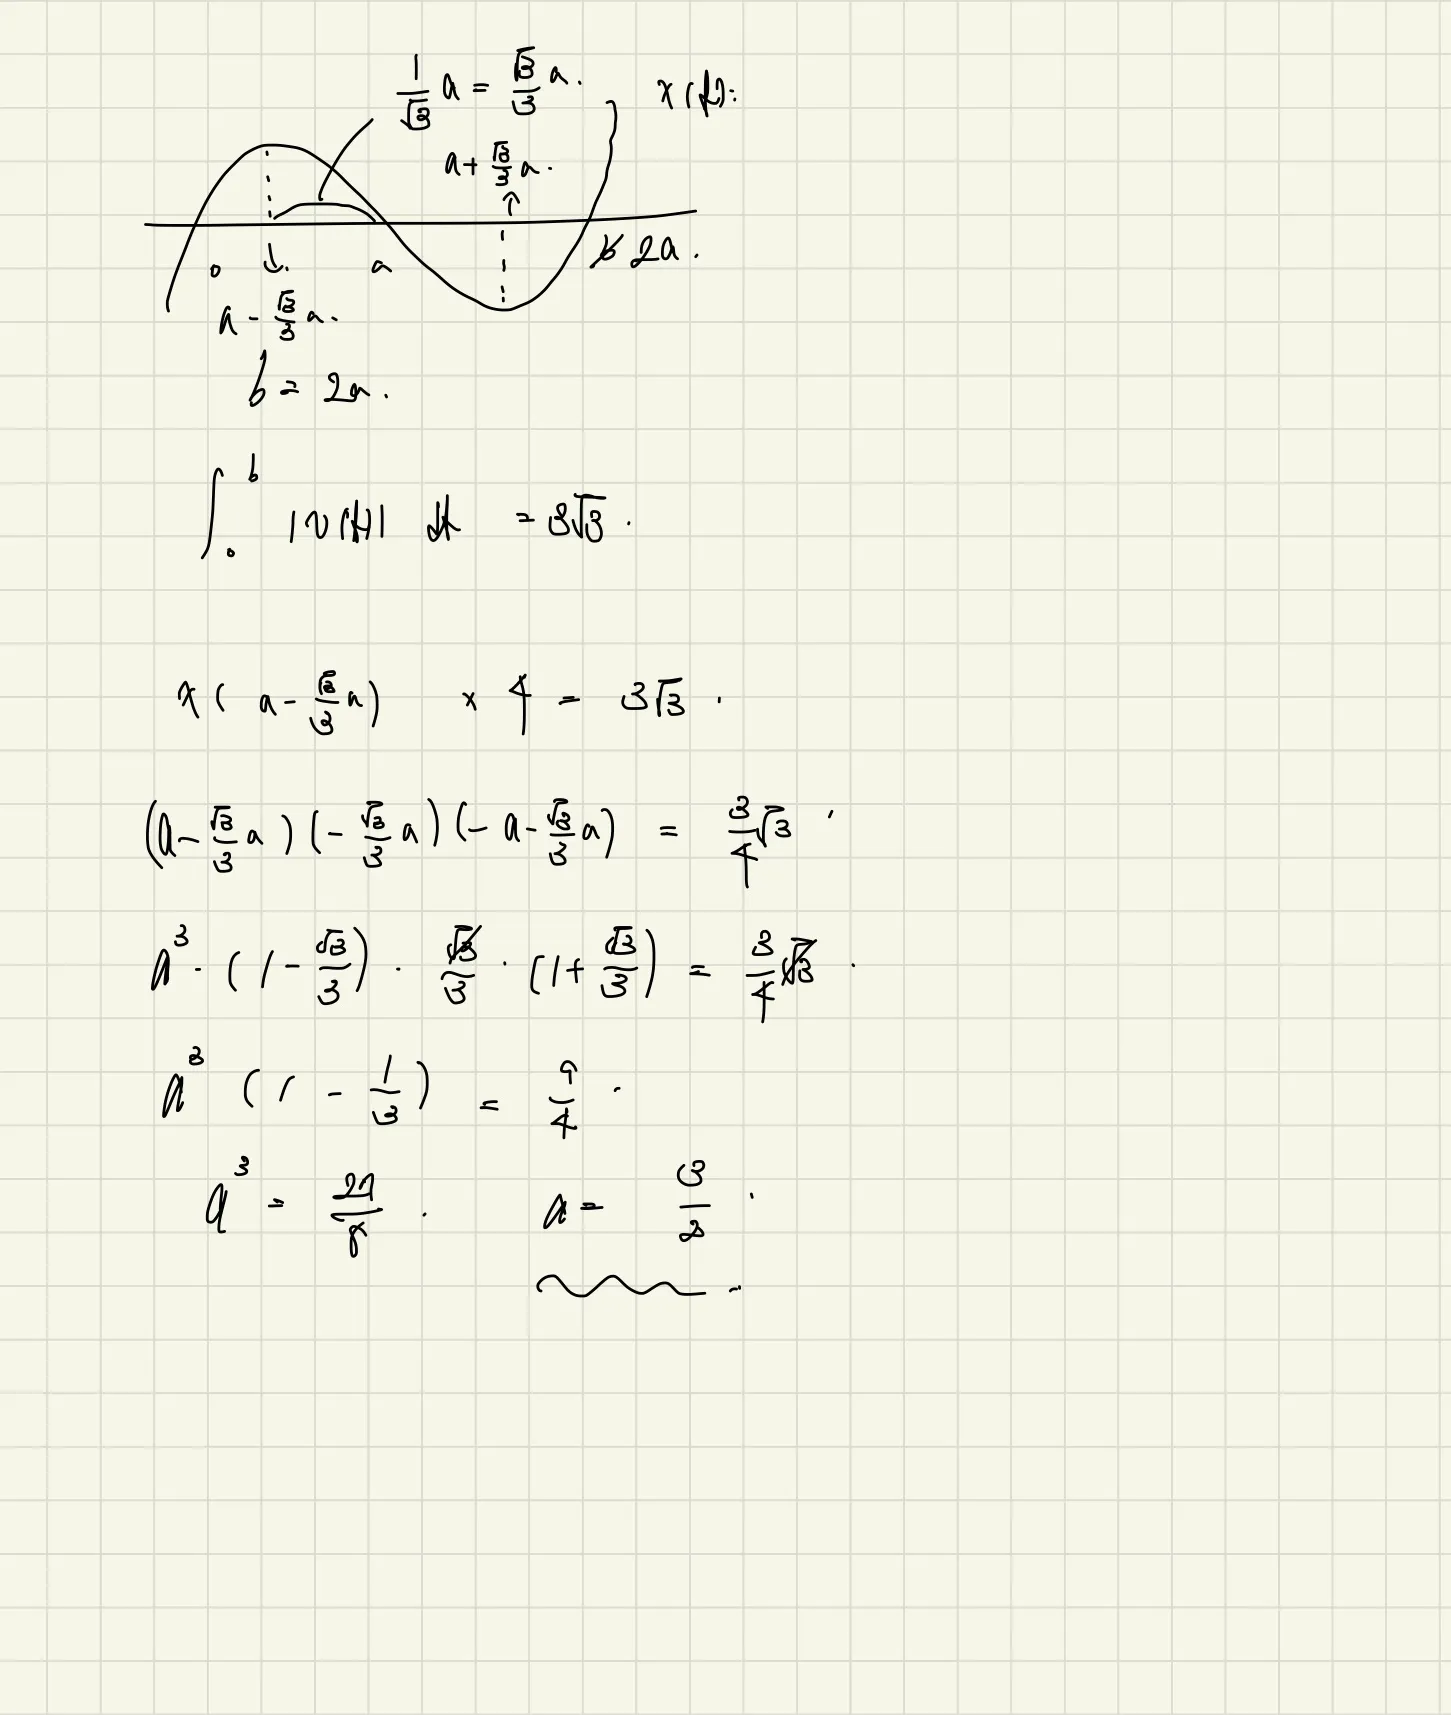 1/√3 a = √3/3 a.
x(t):
a + √3/3 a.
0 a b 2a.
a - √3/3 a.
b = 2a.
∫₀ᵇ |v(t)| dt = 3√3.
x(a - √3/3 a) × 4 = 3√3.
(a - √3/3 a)(-√3/3 a)(-a - √3/3 a) = 3/4 √3.
a³ · (1 - √3/3) · √3/3 · (1 + √3/3) = 3/4 √3.
a³ (1 - 1/3) = 9/4.
a³ = 27/8. a = 3/2.